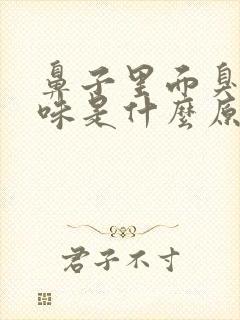 鼻子里而臭
味是什麼原
君子不寸